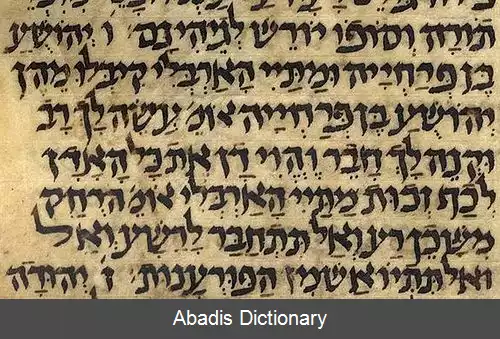 תורה וסופו יורש לגיהינם ׳ ו יהושע
בן פרחייה ומתיי הארבלי קיבלו מהן
יהושע בן פרחייה אומ׳ עשה לך רב
וקנה לך חבר והוי דן את כל האדן
לכף זכות מתיי הארבלי אומ׳ הרחק
משכן רע ואל תתחבר לרשע ואל
ואל תתיואש מן הפורענות ׳ ז יהודה
Abadis Dictionary